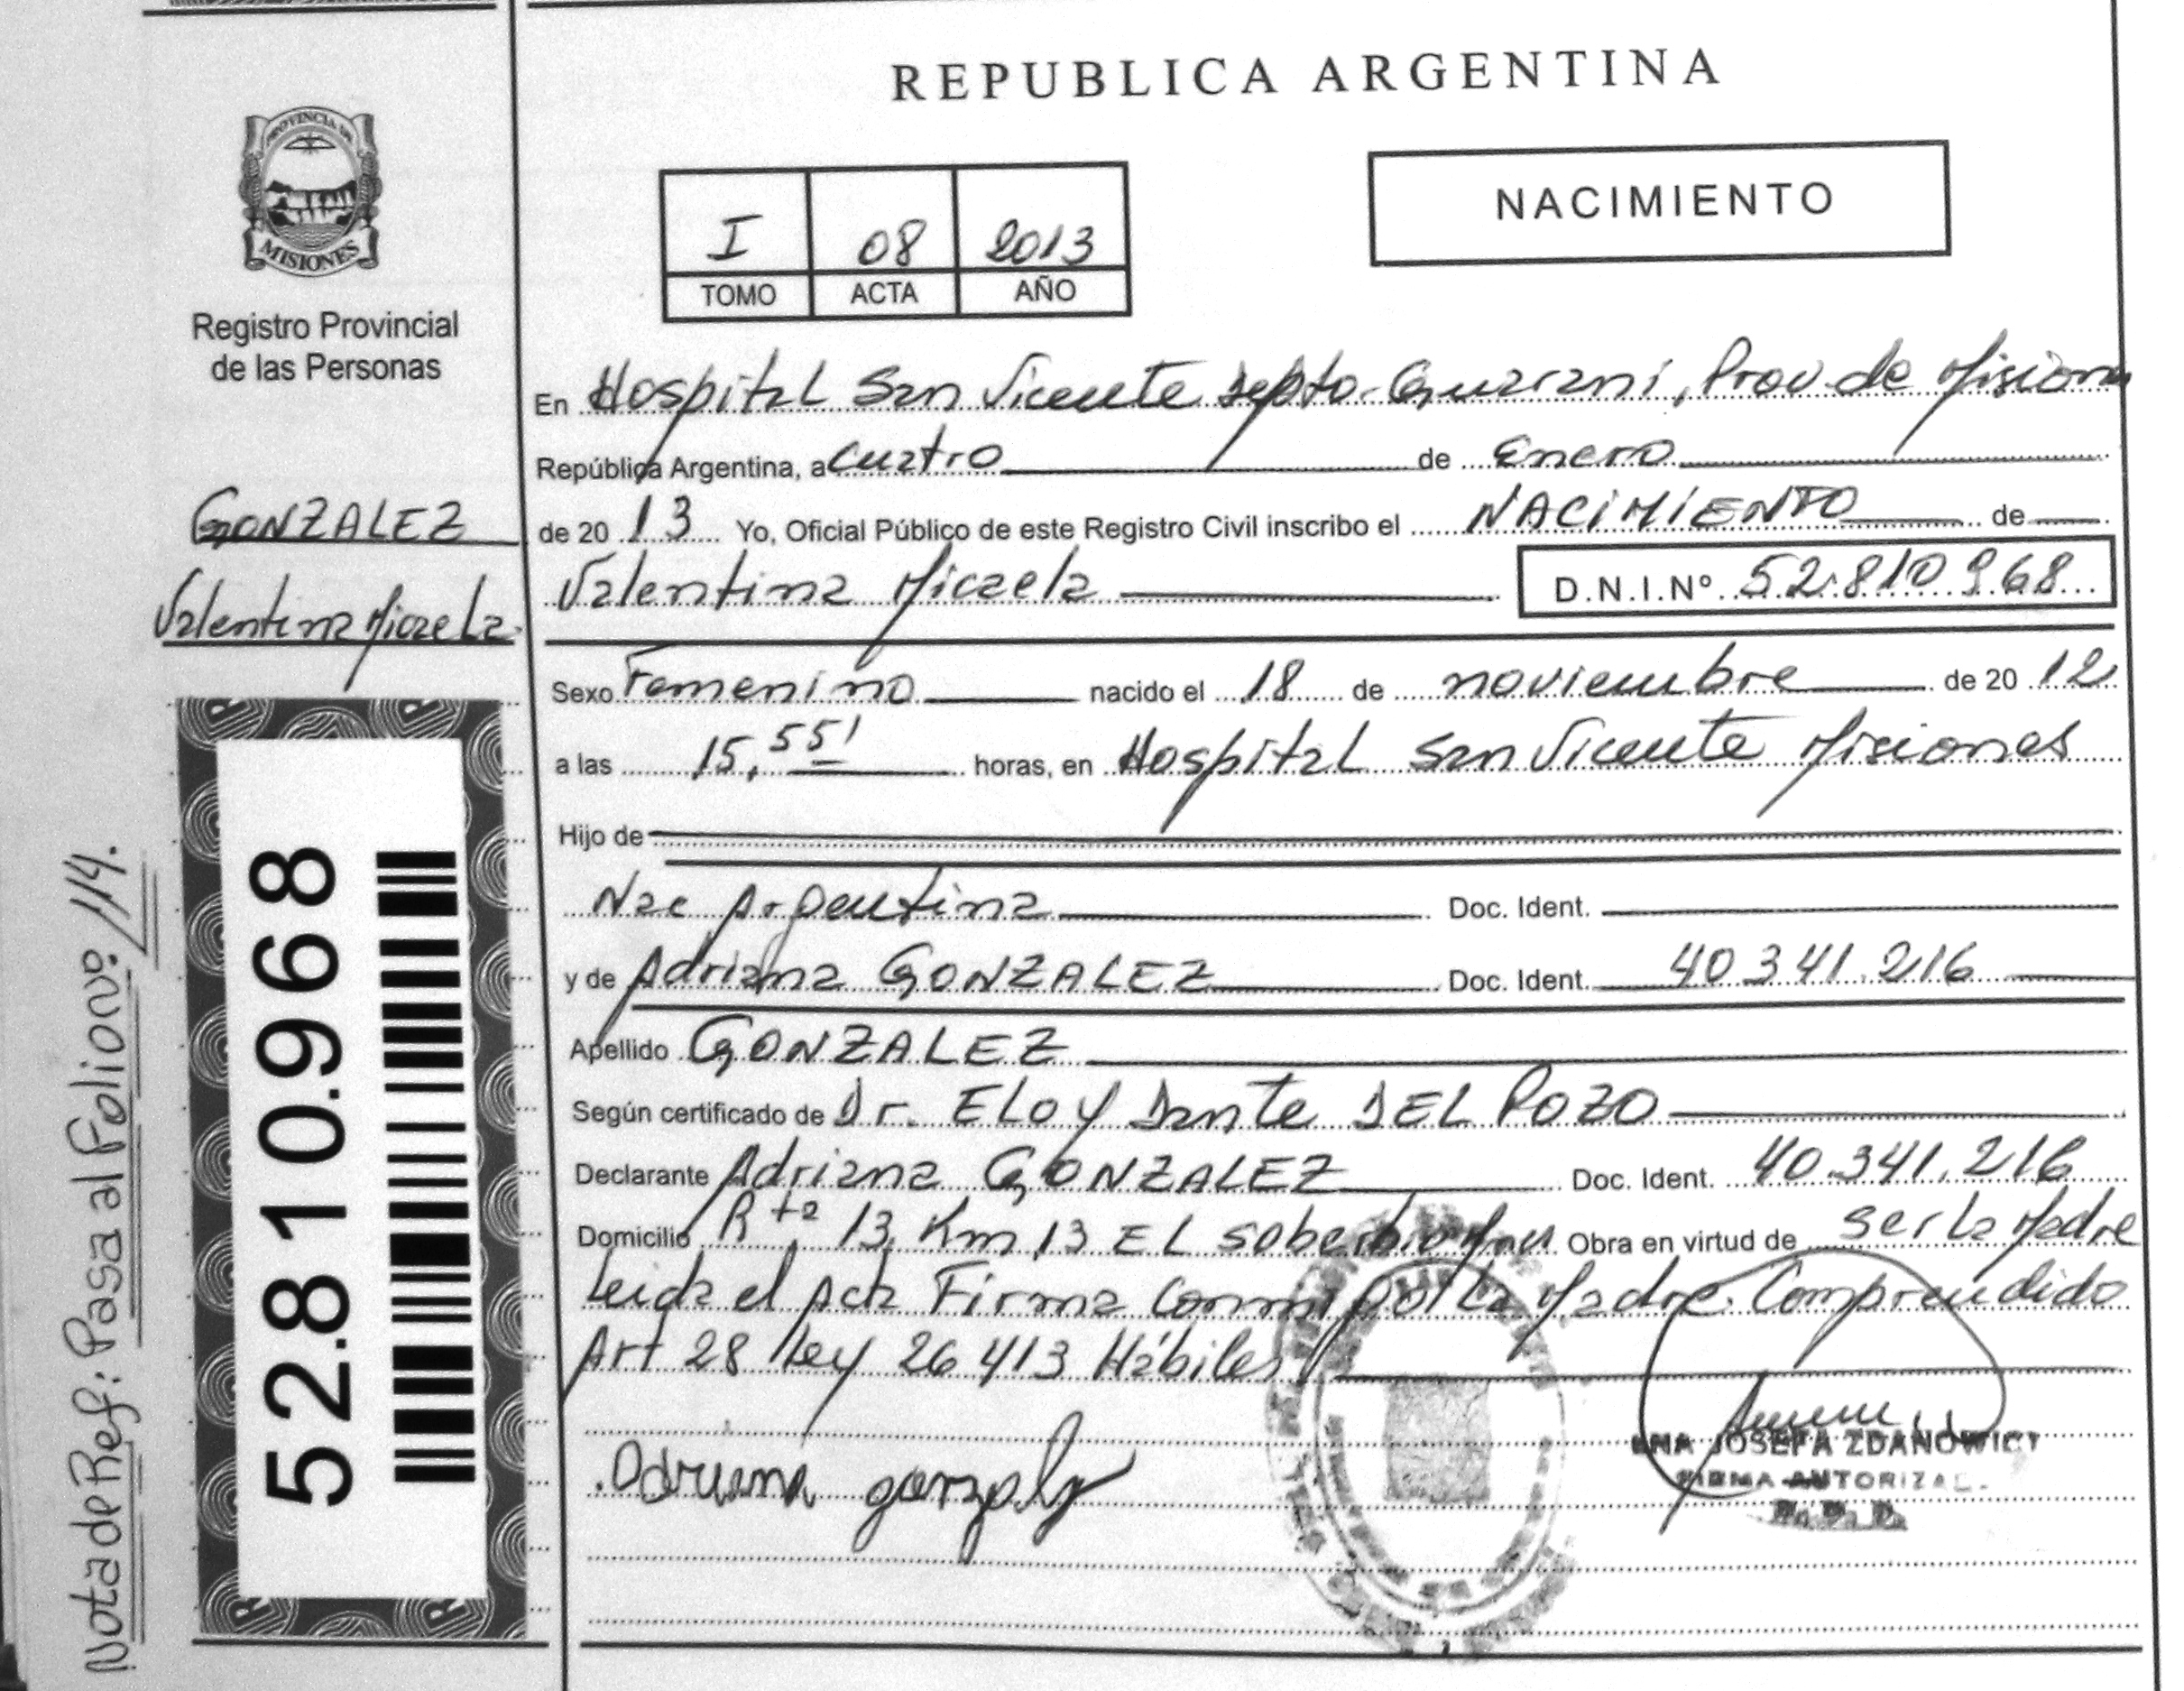 REPUBLICA ARGENTINA
NACIMIENTO
I 08 2013
TOMO ACTA AÑO
PROVINCIA DE
MISIONES
Registro Provincial
de las Personas
GONZALEZ
Valentina Micaela
52.810.968
Nota de Ref: Pasa al Folio nº 114.
En Hospital San Vicente Depto. Guarani, Prov. de Misiones
República Argentina, a cuatro de Enero
de 20 13 Yo, Oficial Público de este Registro Civil inscribo el NACIMIENTO de
Valentina Micaela D.N.I.Nº 52.810.968
Sexo Femenino nacido el 18 de noviembre de 20 12
a las 15,55' horas, en Hospital San Vicente Misiones
Hijo de
Nac Argentina Doc. Ident.
y de Adriana GONZALEZ Doc. Ident. 40.341.216
Apellido GONZALEZ
Según certificado de Dr. ELOY Dante DEL POZO
Declarante Adriana GONZALEZ Doc. Ident. 40.341.216
Domicilio Rta 13 Km 13 EL Soberbio Obra en virtud de ser la Madre
Leida el Acta Firma Conmigo la Madre. Comprendido
Art 28 Ley 26.413 Hábiles
Adriana gonzalez
JOSEFA ZDANOWICZ
FIRMA AUTORIZAD